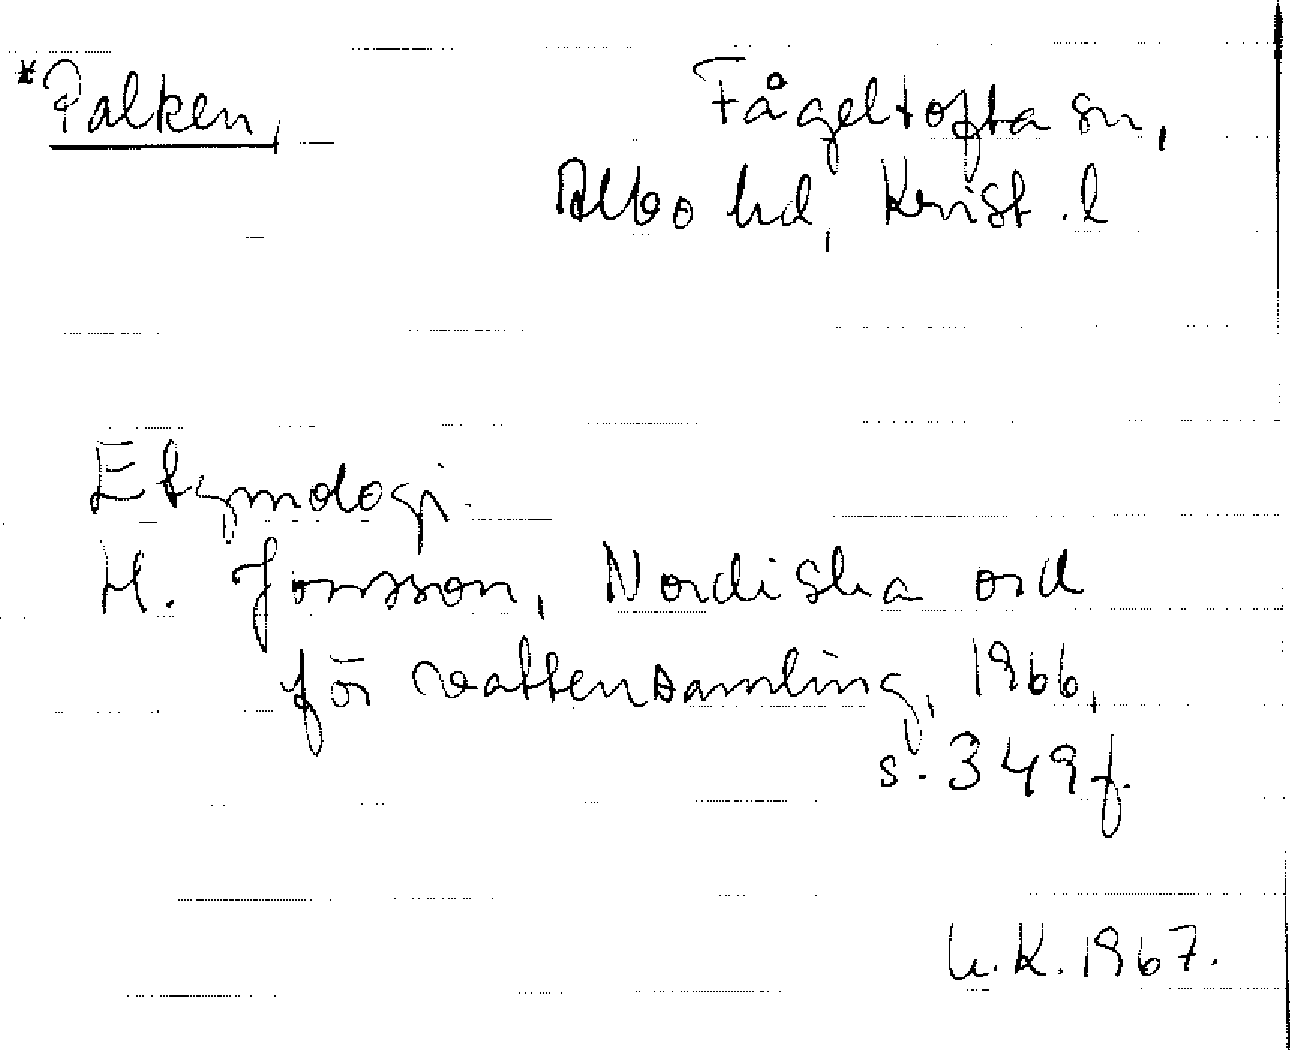 *Palken,
Fågeltofta sn,
Albo hd, Krist. l
Etymologi.
H. Jonsson, Nordiska ord
för vattensamling, 1966,
s. 349 f.
U.K. 1967.